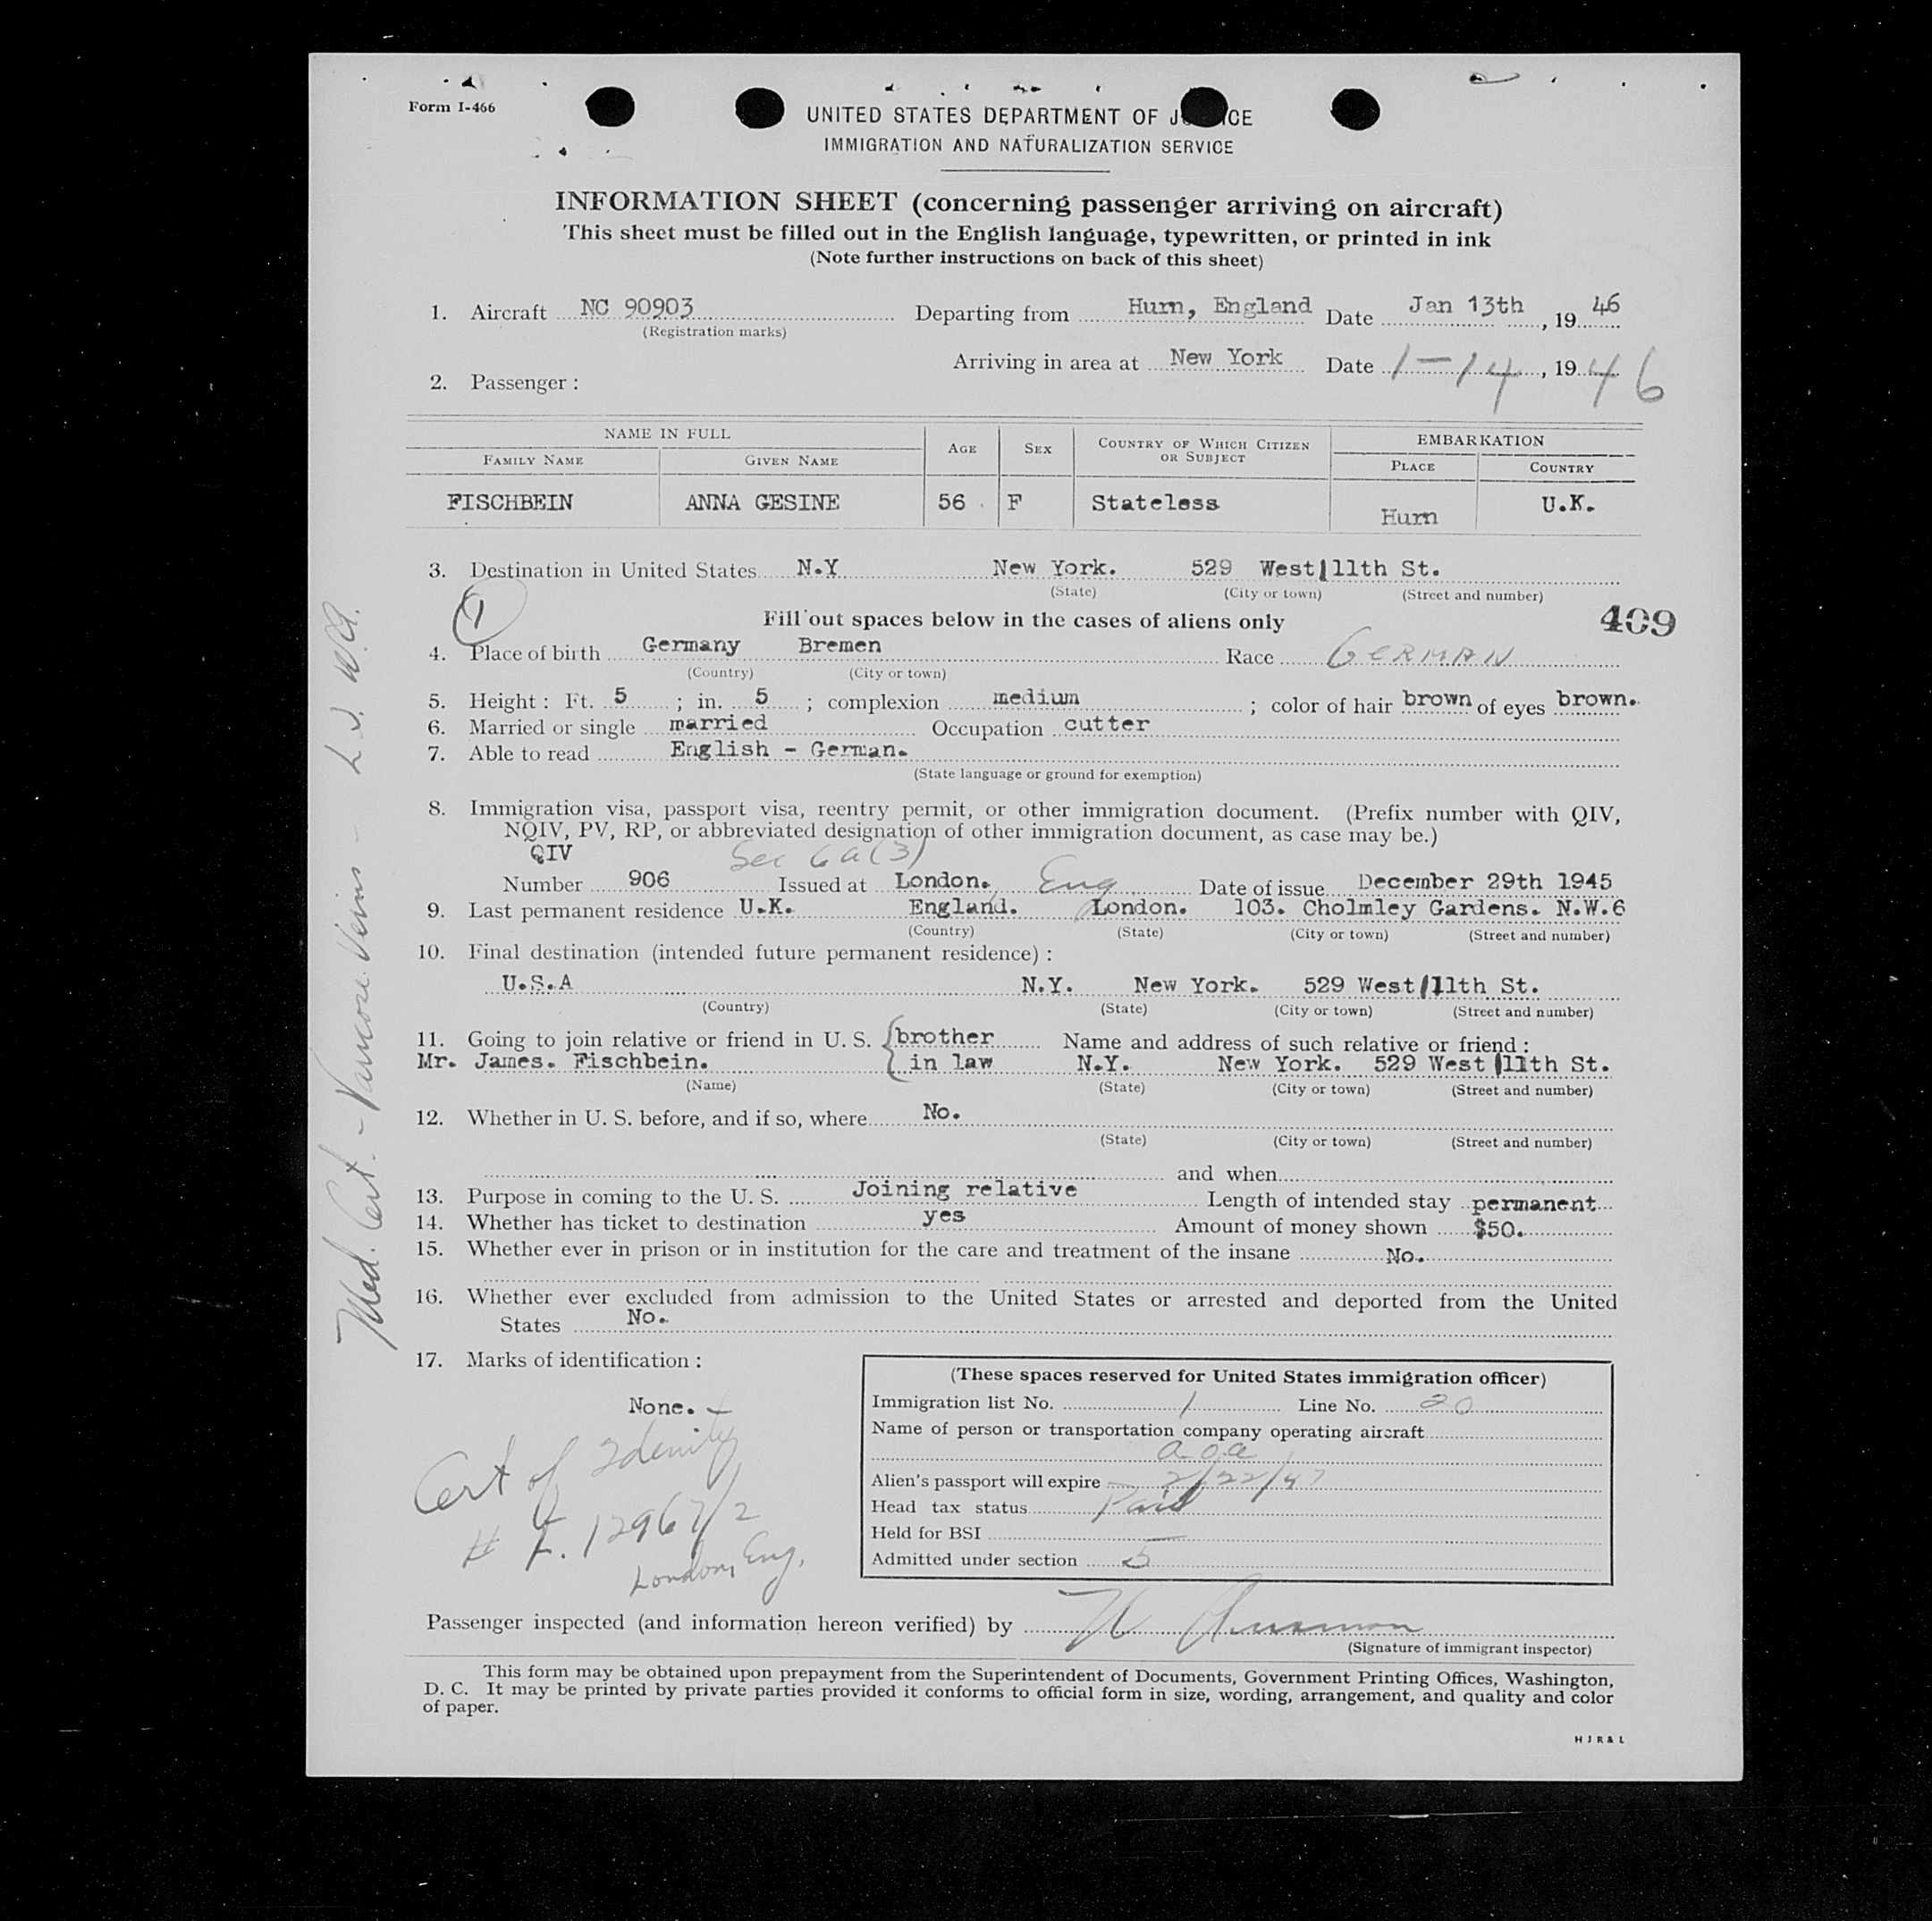 Form I-466
UNITED STATES DEPARTMENT OF J CE
IMMIGRATION AND NATURALIZATION SERVICE
INFORMATION SHEET (concerning passenger arriving on aircraft)
This sheet must be filled out in the English language, typewritten, or printed in ink
(Note further instructions on back of this sheet)
1. Aircraft NC 90903 Departing from Hurn, England Date Jan 13th, 19 46
(Registration marks)
Arriving in area at New York Date 1-14, 19 46
2. Passenger:
NAME IN FULL AGE SEX COUNTRY OF WHICH CITIZEN OR SUBJECT EMBARKATION
FAMILY NAME GIVEN NAME PLACE COUNTRY
FISCHBEIN ANNA GESINE 56 F Stateless Hurn U.K.
3. Destination in United States N.Y New York. 529 West 111th St.
(State) (City or town) (Street and number)
1
Fill out spaces below in the cases of aliens only
409
4. Place of birth Germany Bremen Race GERMAN
(Country) (City or town)
5. Height: Ft. 5; in. 5; complexion medium; color of hair brown of eyes brown.
6. Married or single married Occupation cutter
7. Able to read English - German.
(State language or ground for exemption)
8. Immigration visa, passport visa, reentry permit, or other immigration document. (Prefix number with QIV,
NQIV, PV, RP, or abbreviated designation of other immigration document, as case may be.)
QIV Sec 6a(3)
Number 906 Issued at London. Eng Date of issue December 29th 1945
9. Last permanent residence U.K. England. London. 103. Cholmley Gardens. N.W.6
(Country) (State) (City or town) (Street and number)
10. Final destination (intended future permanent residence):
U.S.A N.Y. New York. 529 West 111th St.
(Country) (State) (City or town) (Street and number)
11. Going to join relative or friend in U. S. brother Name and address of such relative or friend:
Mr. James. Fischbein. in law N.Y. New York. 529 West 111th St.
(Name) (State) (City or town) (Street and number)
12. Whether in U. S. before, and if so, where No.
(State) (City or town) (Street and number)
and when
13. Purpose in coming to the U. S. Joining relative Length of intended stay permanent
14. Whether has ticket to destination yes Amount of money shown $50.
15. Whether ever in prison or in institution for the care and treatment of the insane No.
16. Whether ever excluded from admission to the United States or arrested and deported from the United
States No.
17. Marks of identification:
None.
Cert of Idenity
# L. 12967/2
London, Eng.
(These spaces reserved for United States immigration officer)
Immigration list No. 1 Line No. 20
Name of person or transportation company operating aircraft
a.o.a
Alien's passport will expire 2/22/47
Head tax status Paid
Held for BSI —
Admitted under section 5
Passenger inspected (and information hereon verified) by
(Signature of immigrant inspector)
This form may be obtained upon prepayment from the Superintendent of Documents, Government Printing Offices, Washington,
D. C. It may be printed by private parties provided it conforms to official form in size, wording, arrangement, and quality and color
of paper.
H J R & L
Med. Cert. - Varicose Veins -